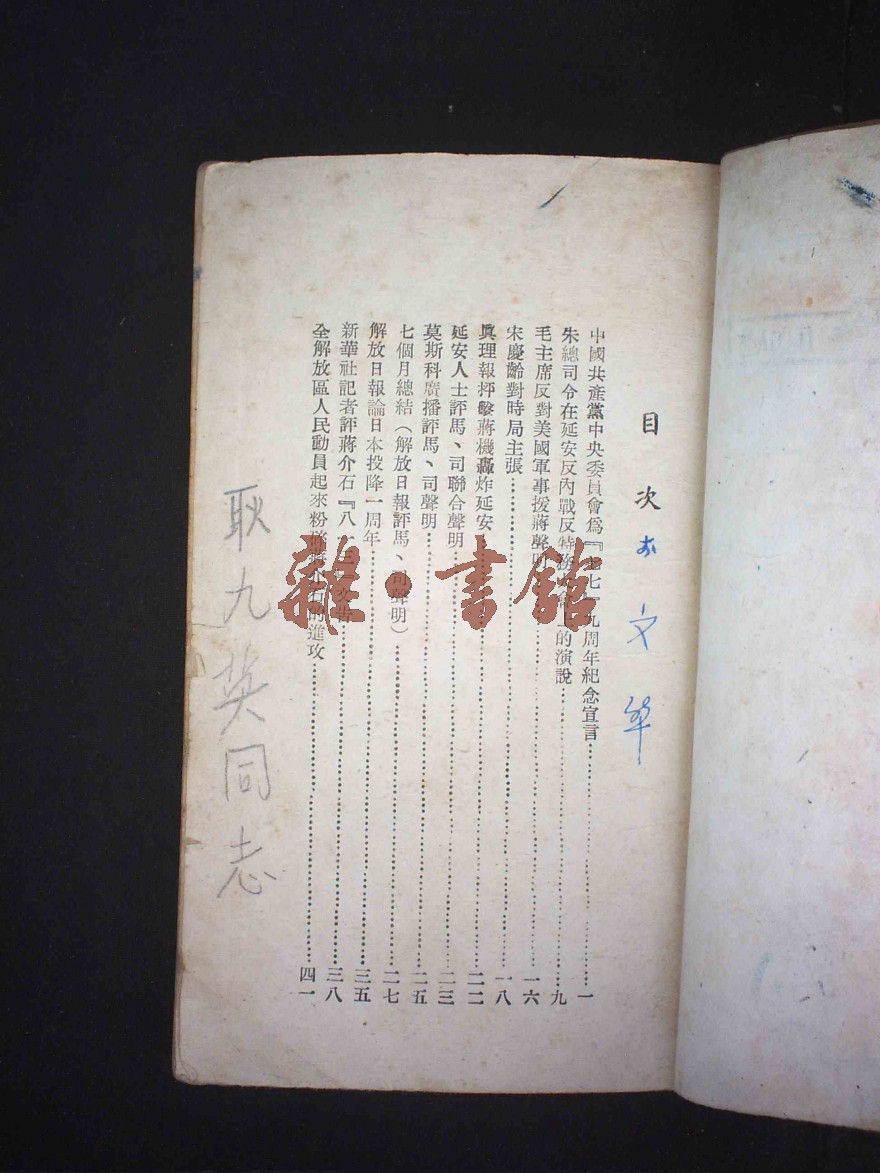 目次
中國共產黨中央委員會爲『七七』九周年紀念宣言⋯⋯一
朱總司令在延安反內戰反特務⋯⋯的演說⋯⋯九
毛主席反對美國軍事援蔣聲明⋯⋯一六
宋慶齡對時局主張⋯⋯一八
眞理報抨擊蔣機轟炸延安⋯⋯二二
延安人士評馬、司聯合聲明⋯⋯二三
莫斯科廣播評馬、司聲明⋯⋯二五
七個月總結（解放日報評馬、司聲明）⋯⋯二七
解放日報論日本投降一周年⋯⋯三五
新華社記者評蔣介石『八一三』文告⋯⋯三八
全解放區人民動員起來粉碎蔣介石的進攻⋯⋯四一
耿九英同志
雜·書館